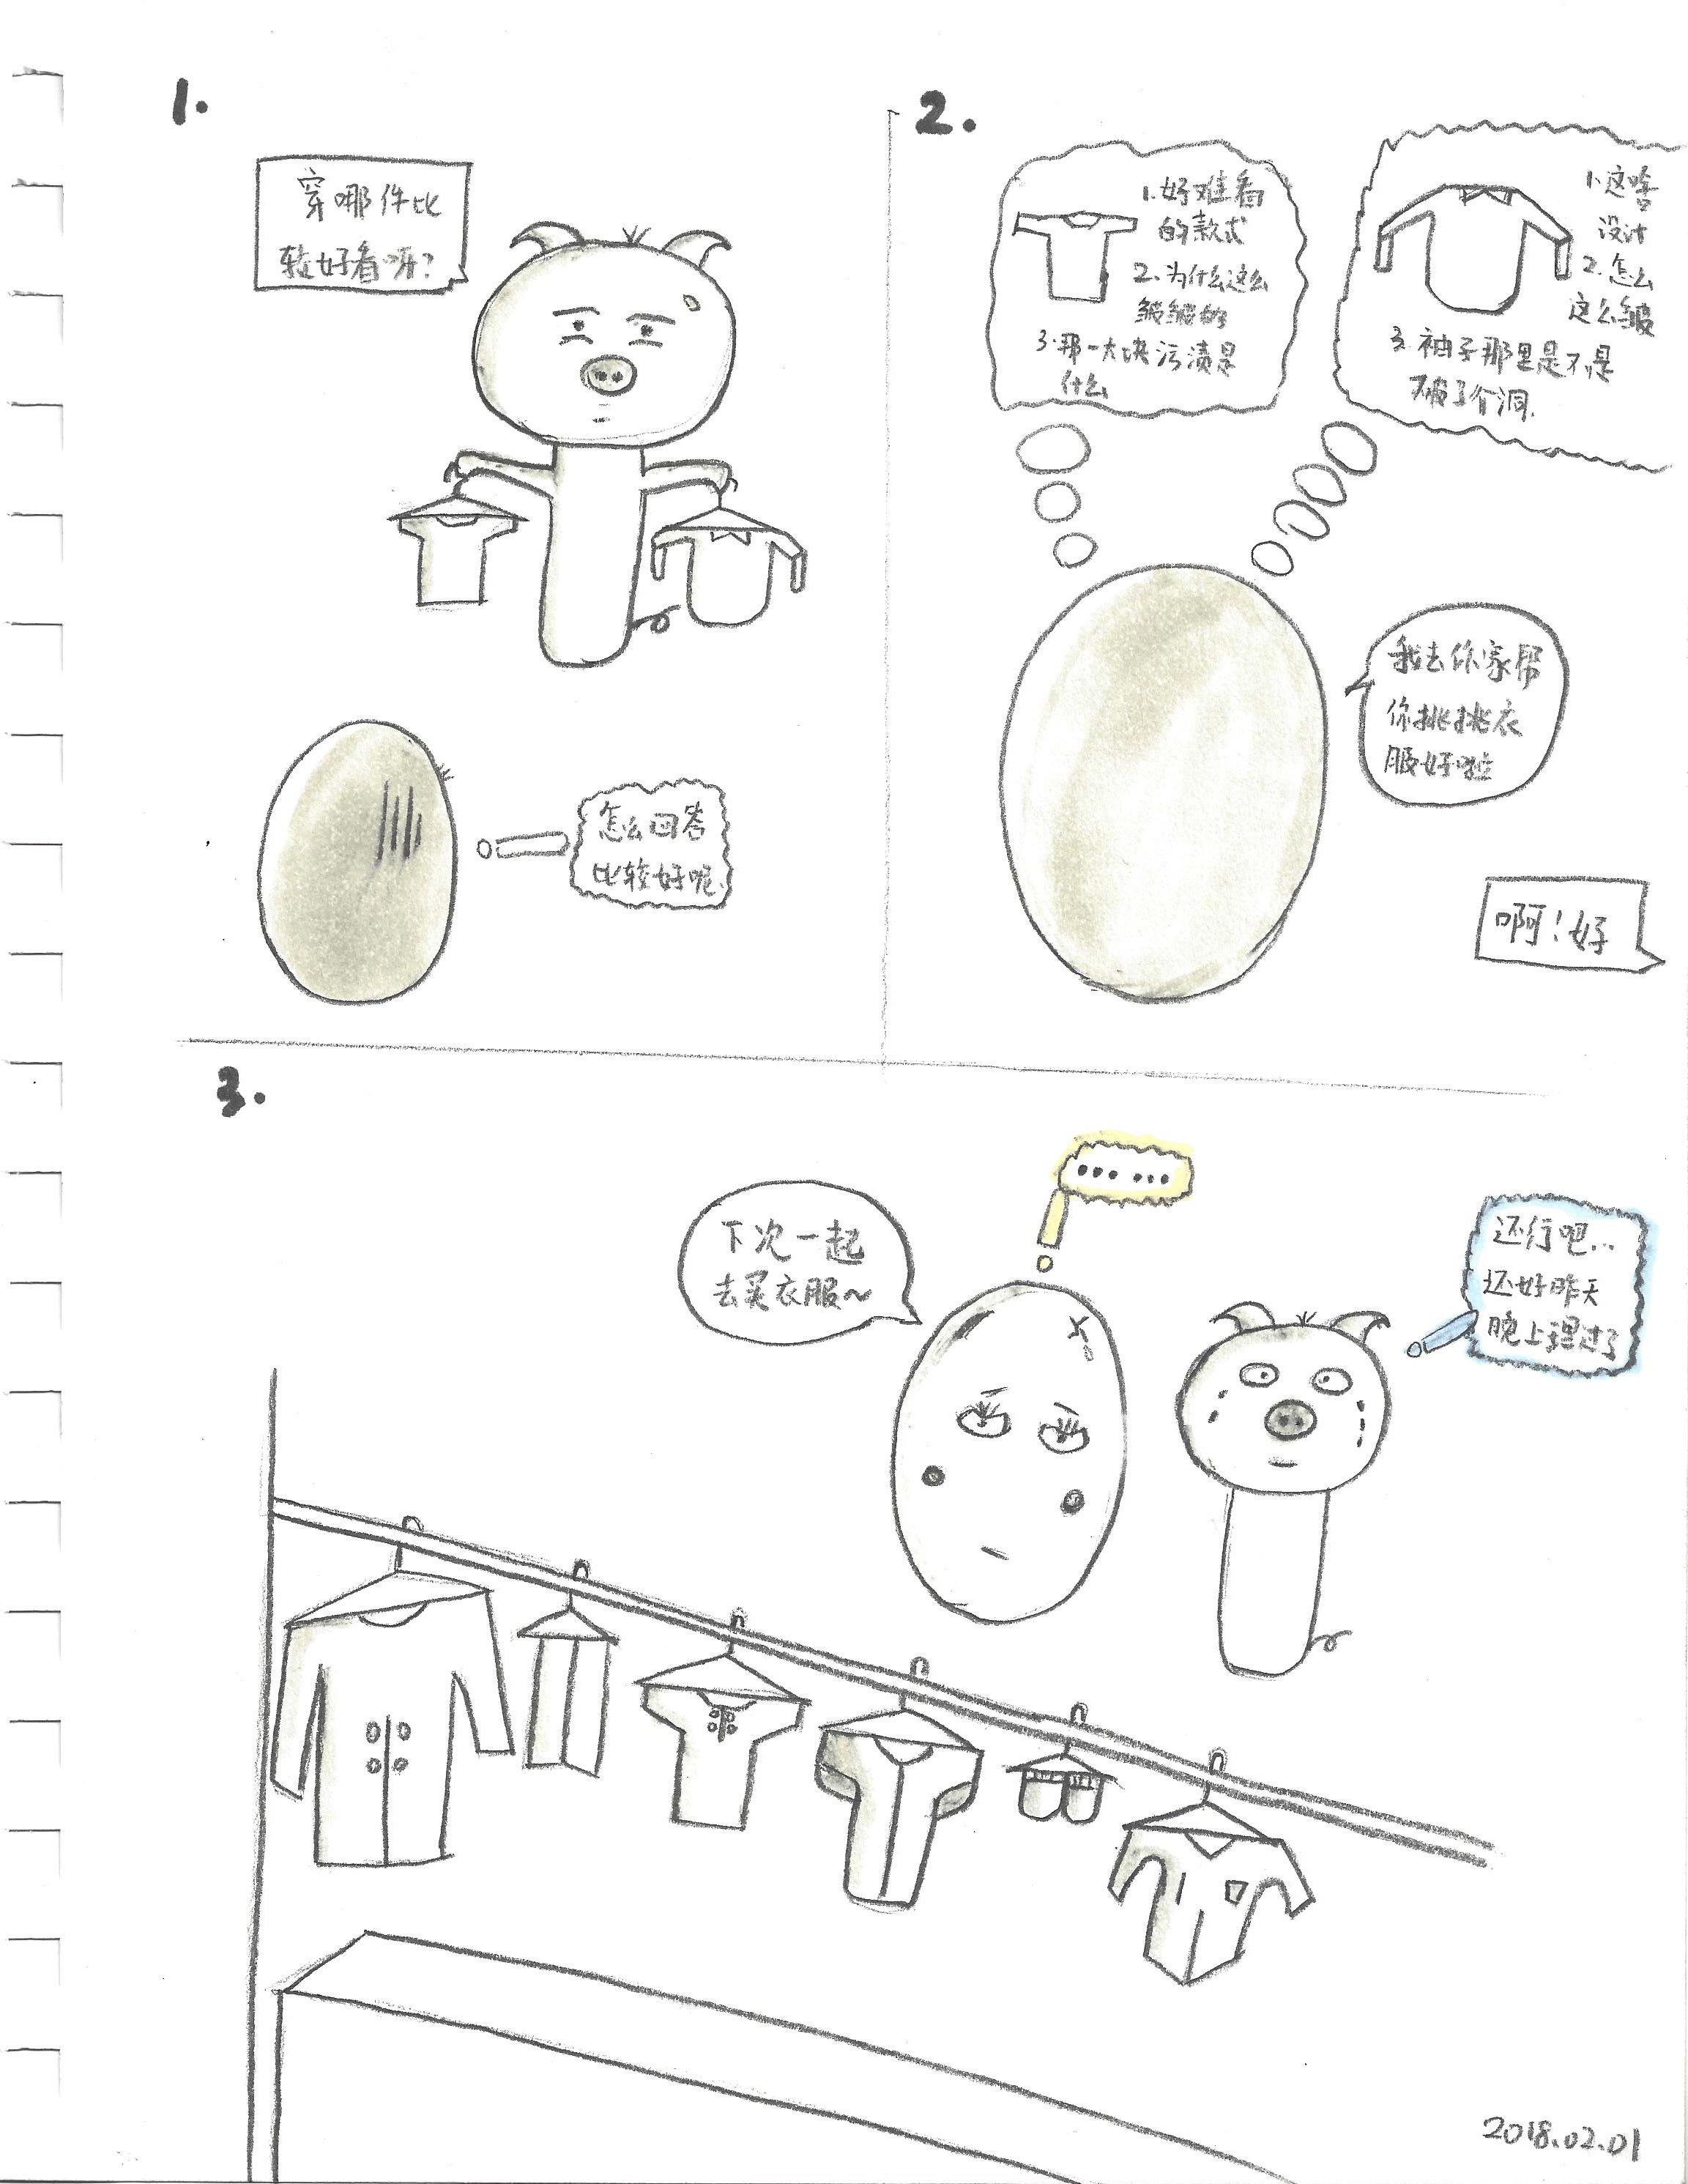 1.
穿哪件比
较好看呀?
怎么回答
比较好呢
2.
1.好难看
的款式
2.为什么这么
皱皱的
3.那一大块污渍是
什么
1.这啥
设计
2.怎么
这么皱
3.袖子那里是不是
破了个洞.
我去你家帮
你挑挑衣
服好啦
啊!好
3.
下次一起
去买衣服~
......
还行吧...
还好昨天
晚上理过了
2018.02.01